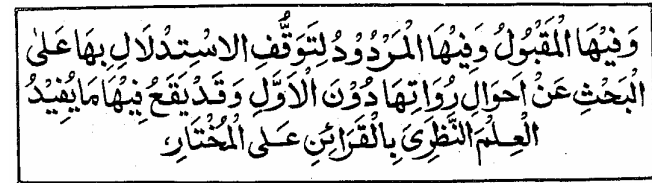 وَفِيْهَا الْمَقْبُوْلُ وَفِيْهَا الْمَرْدُوْدُ لِتَوَقُّفِ الاِسْتِدْلَالِ بِهَا عَلىٰ
الْبَحْثِ عَنْ اَحْوَالِ رُوَاتِهَا دُوْنَ الْاَوَّلِ وَقَدْ يَقَعُ فِيْهَا مَا يُفِيْدُ
الْعِلْمَ النَّظْرِىَ بِالْقَرَائِنِ عَلَى الْمُخْتَارِ،